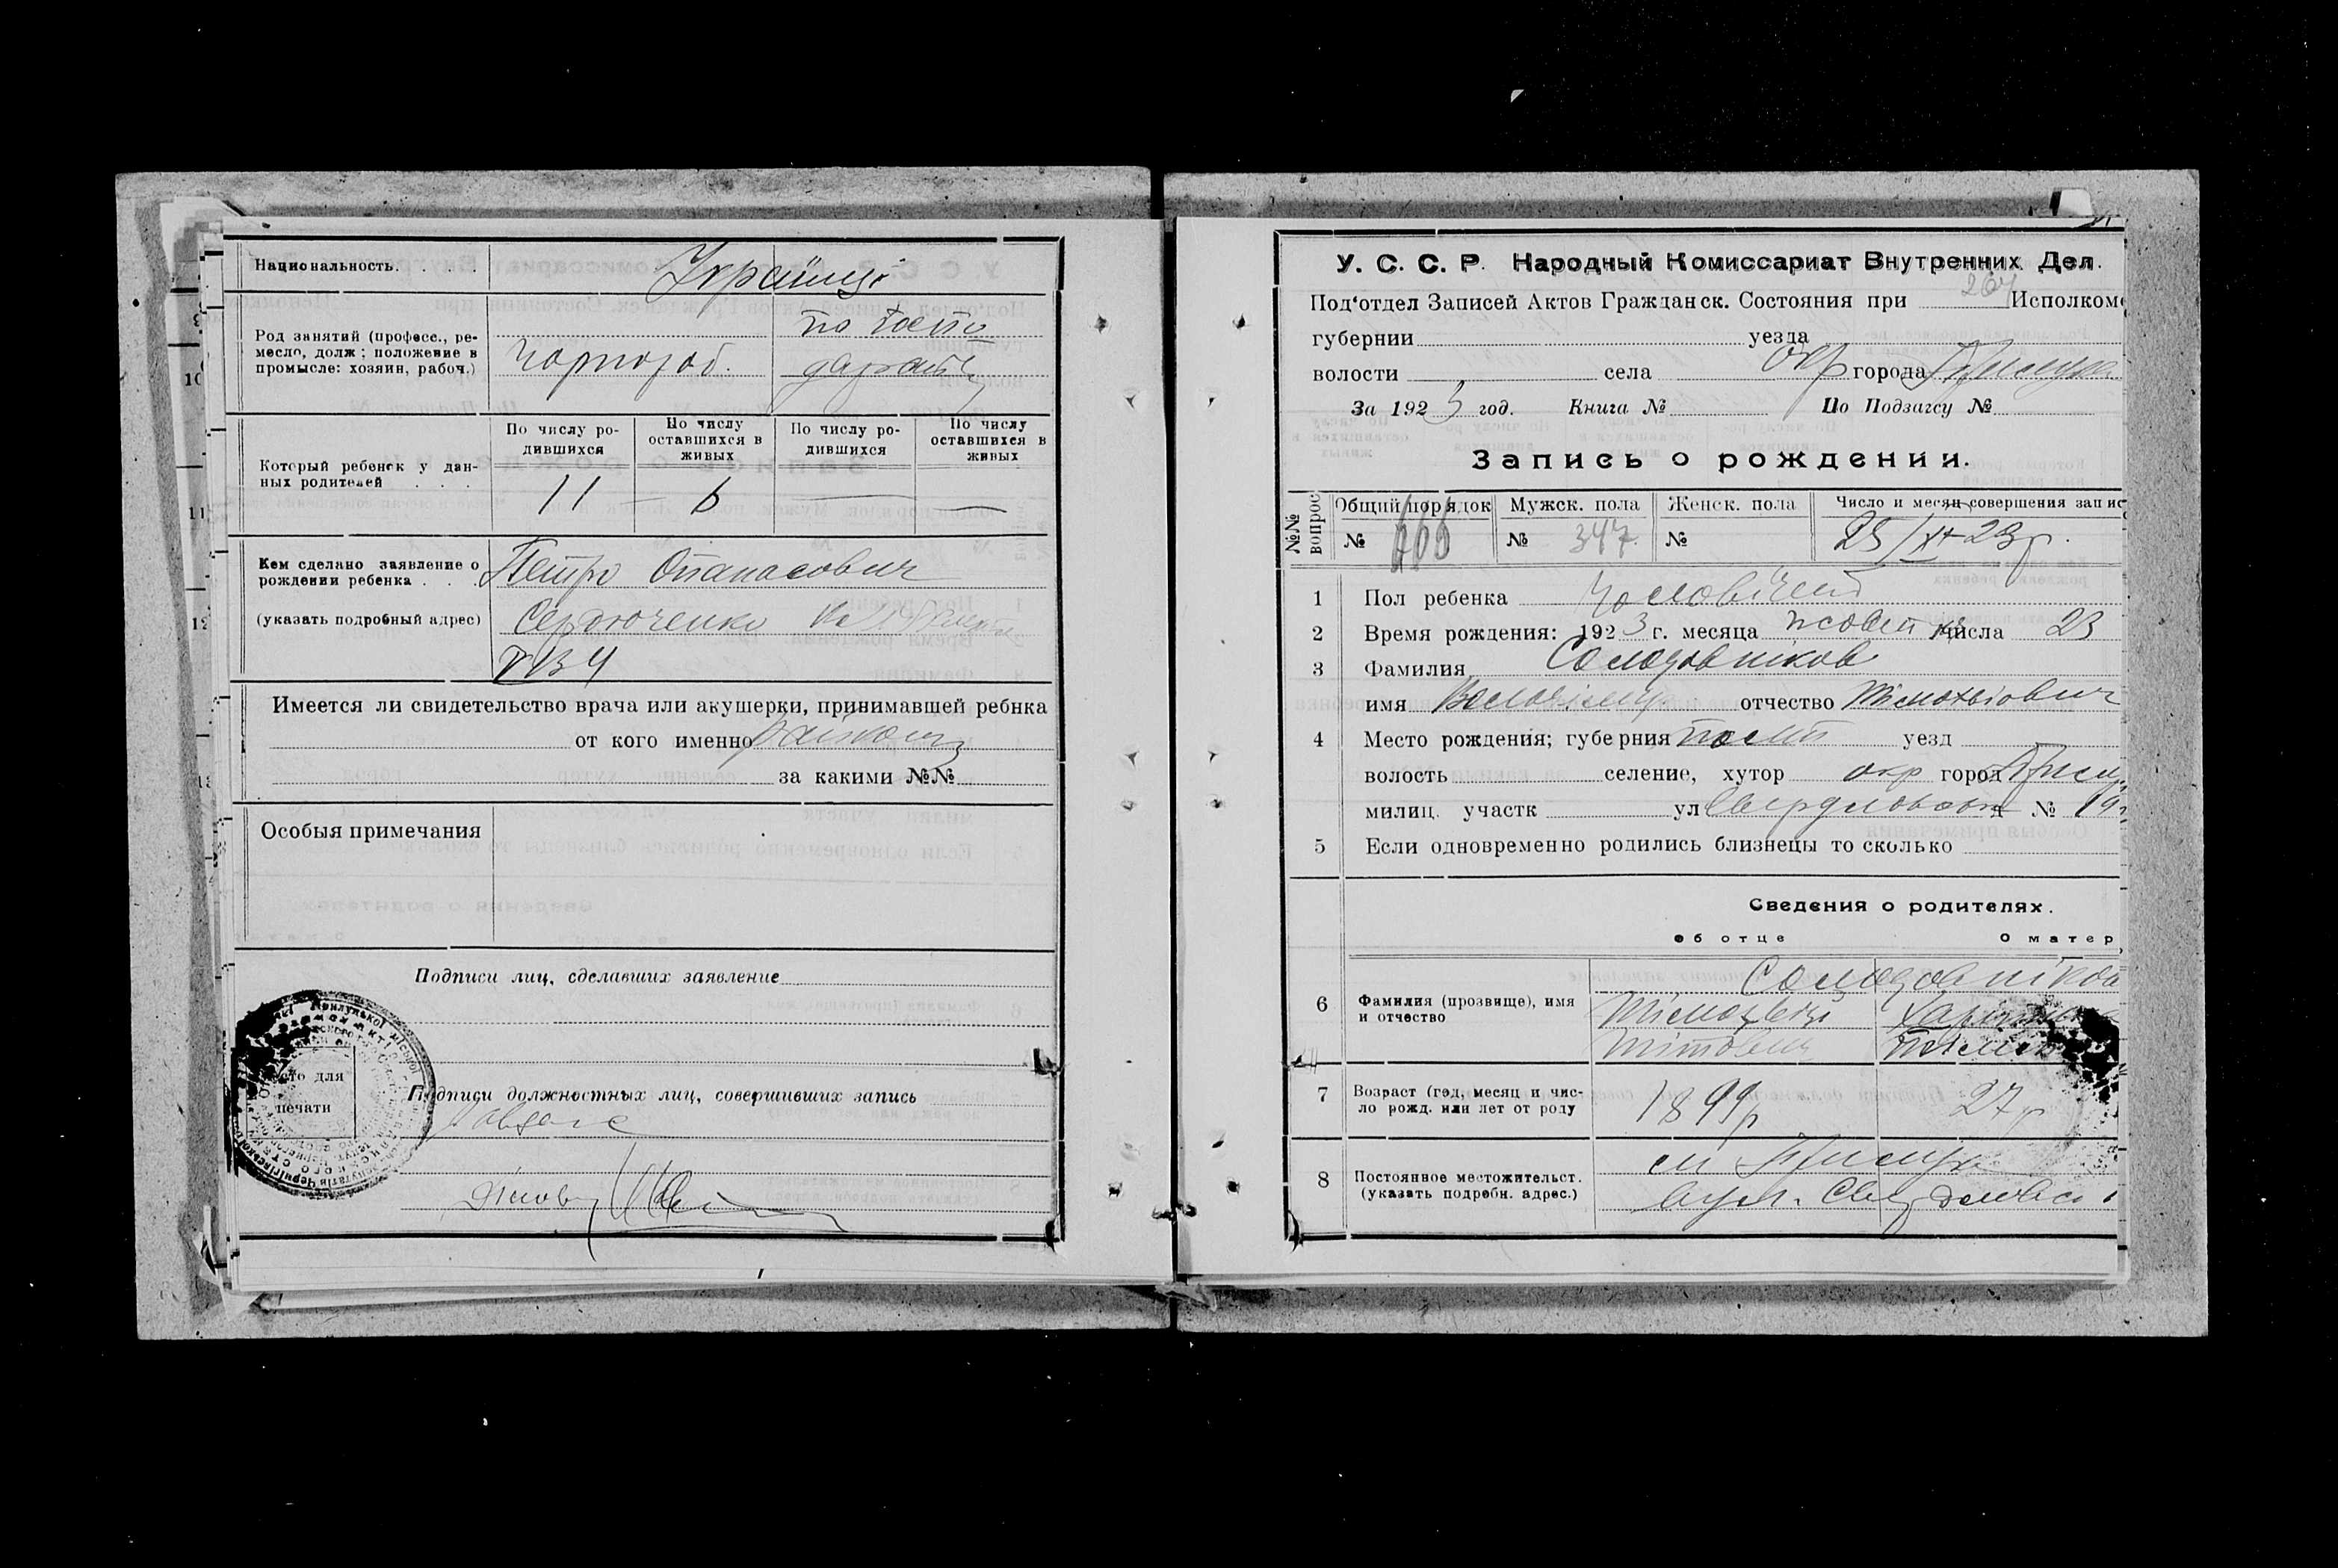 Национальность. . . . Українці
Род занятий (професс., ре-
месло, долж; положение в
промысле: хозяин, рабоч.)
чорнороб.
по госпо
дарств
Который ребенок у дан-
ных родителей . . .
По числу ро-
дившихся
По числу
оставшихся в
живых
По числу ро-
дившихся
По числу
оставшихся в
живых
11 — 6
Кем сделано заявление о
рождении ребенка . . .
(указать подробный адрес)
Петро Опанасович
Сердюченко
Имеется ли свидетельство врача или акушерки, принимавшей ребнка
от кого именно
за какими №№
Особыя примечания
Подписи лиц, сделавших заявление
Место для
печати
Подписи должностных лиц, совершивших запись
У. С. С. Р. Народный Комиссариат Внутренних Дел.
Под‘отдел Записей Актов Гражданск. Состояния при 264 Исполкоме
губернии уезда
волости села окр города Прилука
За 1923 год. Книга № По Подзагсу №
Запись о рождении.
№№ вопрос
Общий порядок
№
Мужск. пола
№ 347.
Женск. пола
№
Число и месяц совершения запис
25/XI 23р.
1 Пол ребенка Чоловічеі
2 Время рождения: 1923 г. месяца жовтня числа 23
3 Фамилия Солодовников
имя Володимир отчество Тімохвіович
4 Место рождения; губерния Полт уезд
волость селение, хутор окр город Прилу
милиц. участк ул Свердловська д № 19
5 Если одновременно родились близнецы то сколько
Сведения о родителях.
об отце
О матер
6 Фамилия (прозвище), имя
и отчество
Солодовнікови
Тімохвій
Тітович
7 Возраст (год, месяц и чис-
ло рожд. или лет от роду
1899р
27р
8 Постоянное местожительст.
(указать подробн. адрес.)
м Прилука
вул. Свердловськ